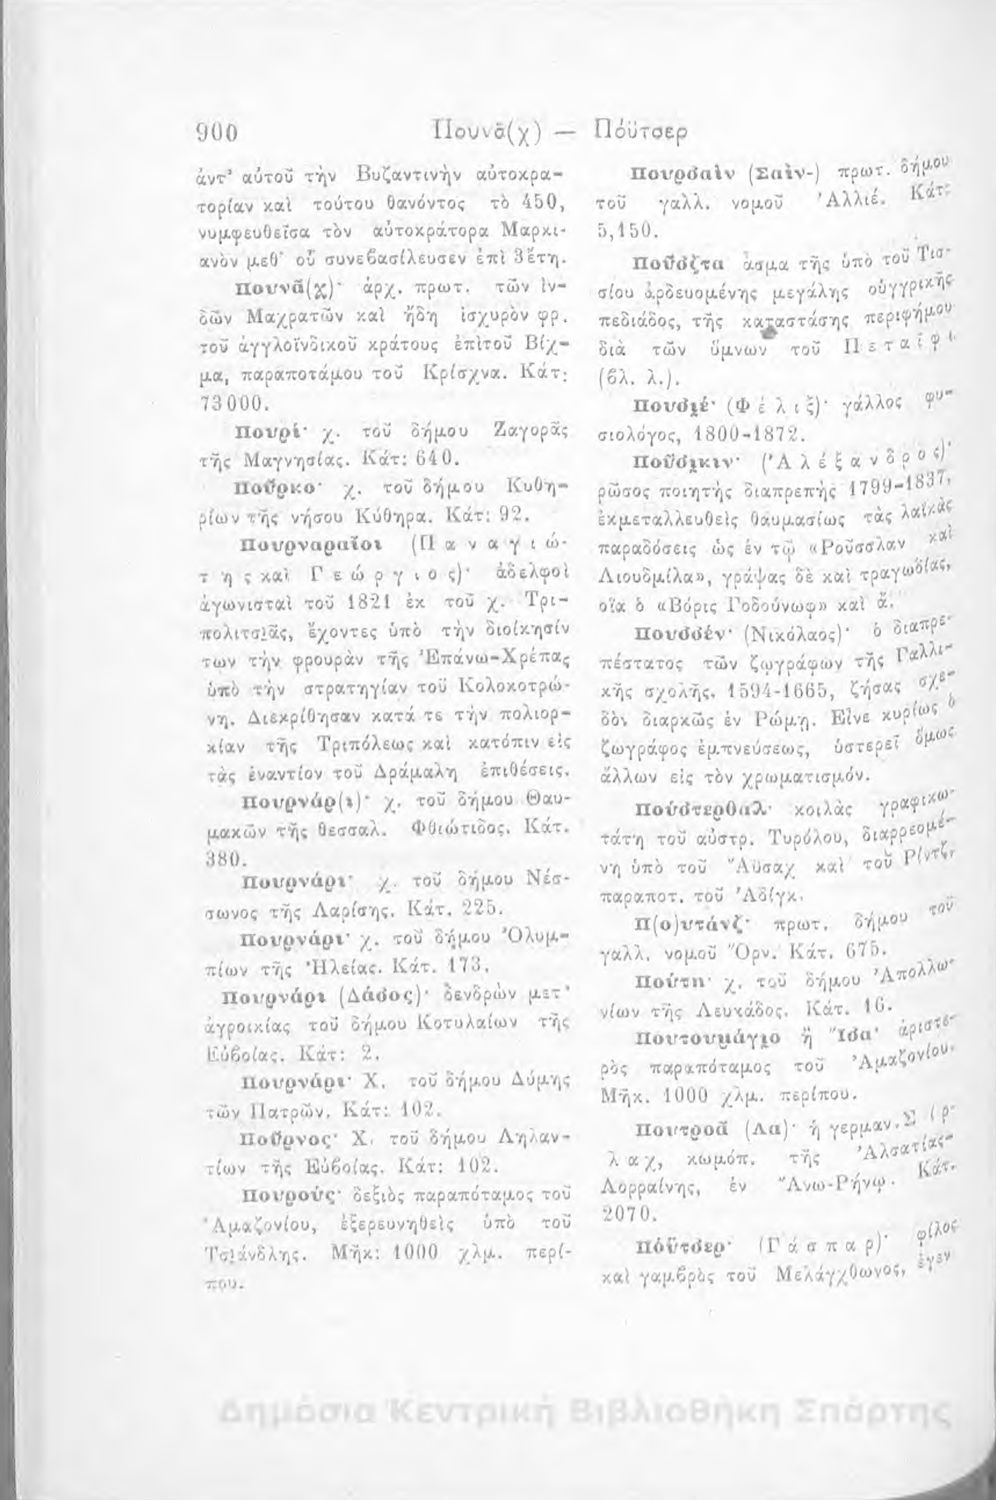 900 Πουνᾶ(χ) — Πόϋτσερ
ἀντ' αὐτοῦ τὴν Βυζαντινὴν αὐτοκρα-
τορίαν καὶ τούτου θανόντος τὸ 450,
νυμφευθεῖσα τὸν αὐτοκράτορα Μαρκι-
ανὸν μεθ' οὗ συνεβασίλευσεν ἐπὶ 3 ἔτη.
Πουνᾶ(χ)· ἀρχ. πρωτ. τῶν Ἰν-
δῶν Μαχρατῶν καὶ ἤδη ἰσχυρὸν φρ.
τοῦ ἀγγλοϊνδικοῦ κράτους ἐπὶ τοῦ Βίχ-
μα, παραποτάμου τοῦ Κρίσχνα. Κάτ:
73000.
Πουρί· χ. τοῦ δήμου Ζαγορᾶς
τῆς Μαγνησίας. Κάτ: 640.
Ποῦρκο· χ. τοῦ δήμου Κυθη-
ρίων τῆς νήσου Κύθηρα. Κάτ: 92.
Πουρναραῖοι (Παναγιώ-
της καὶ Γεώργιος)· ἀδελφοὶ
ἀγωνισταὶ τοῦ 1821 ἐκ τοῦ χ. Τρι-
πολιτσιᾶς, ἔχοντες ὑπὸ τὴν διοίκησίν
των τὴν φρουρὰν τῆς Ἐπάνω-Χρέπας
ὑπὸ τὴν στρατηγίαν τοῦ Κολοκοτρώ-
νη. Διεκρίθησαν κατά τε τὴν πολιορ-
κίαν τῆς Τριπόλεως καὶ κατόπιν εἰς
τὰς ἐναντίον τοῦ Δράμαλη ἐπιθέσεις.
Πουρνάρ(ι)· χ. τοῦ δήμου Θαυ-
μακῶν τῆς θεσσαλ. Φθιώτιδος. Κάτ.
380.
Πουρνάρι· χ. τοῦ δήμου Νέσ-
σωνος τῆς Λαρίσης. Κάτ. 225.
Πουρνάρι· χ. τοῦ δήμου Ὀλυμ-
πίων τῆς Ἠλείας. Κάτ. 173.
Πουρνάρι (Δάσος)· δενδρὼν μετ'
ἀγροικίας τοῦ δήμου Κοτυλαίων τῆς
Εὐβοίας. Κάτ: 2.
Πουρνάρι· Χ. τοῦ δήμου Δύμης
τῶν Πατρῶν. Κάτ: 102.
Ποῦρνος· Χ. τοῦ δήμου Ληλαν-
τίων τῆς Εὐβοίας. Κάτ: 102.
Πουρούς· δεξιὸς παραπόταμος τοῦ
Ἀμαζονίου, ἐξερευνηθεὶς ὑπὸ τοῦ
Τσιάνδλης. Μῆκ: 1000 χλμ. περί-
που.
Πουρσαὶν (Σαὶν-) πρωτ. δήμου
τοῦ γαλλ. νομοῦ Ἀλλιέ. Κάτ:
5,150.
Ποῦσζτα ἆσμα τῆς ὑπὸ τοῦ Τισ-
σίου ἀρδευομένης μεγάλης οὑγγρικῆς
πεδιάδος, τῆς καταστάσης περιφήμου
διὰ τῶν ὕμνων τοῦ Πεταῖφι
(βλ. λ.).
Πουσιέ· (Φέλιξ)· γάλλος φυ-
σιολόγος, 1800-1872.
Ποῦσικιν· (Ἀλέξανδρος)·
ρῶσος ποιητὴς διαπρεπὴς 1799-1837,
ἐκμεταλλευθεὶς θαυμασίως τὰς λαϊκὰς
παραδόσεις ὡς ἐν τῷ «Ροῦσσλαν καὶ
Λιουδμίλα», γράψας δὲ καὶ τραγωδίας,
οἵα ὁ «Βόρις Γοδούνωφ» καὶ ἄ.
Πουσσέν· (Νικόλαος)· ὁ διαπρε-
πέστατος τῶν ζωγράφων τῆς Γαλλι-
κῆς σχολῆς. 1594-1665, ζήσας σχε-
δὸν διαρκῶς ἐν Ρώμῃ. Εἶνε κυρίως ὁ
ζωγράφος ἐμπνεύσεως, ὑστερεῖ ὅμως
ἄλλων εἰς τὸν χρωματισμόν.
Πούστερθαλ· κοιλὰς γραφικω-
τάτη τοῦ αὐστρ. Τυρόλου, διαρρεομέ-
νη ὑπὸ τοῦ Ἄϋσαχ καὶ τοῦ Ρίντζ,
παραποτ. τοῦ Ἀδίγκ.
Π(ο)υτάνζ· πρωτ. δήμου τοῦ
γαλλ. νομοῦ Ὄρν. Κάτ. 675.
Πούτη· χ. τοῦ δήμου Ἀπολλω-
νίων τῆς Λευκάδος. Κάτ. 16.
Πουτουμάγιο ἢ Ἴσα· ἀριστε-
ρὸς παραπόταμος τοῦ Ἀμαζονίου.
Μῆκ. 1000 χλμ. περίπου.
Πουτροᾶ (Λα)· ἡ γερμαν. Σιρ-
λαχ, κωμόπ. τῆς Ἀλσατίας-
Λορραίνης, ἐν Ἄνω-Ρήνῳ. Κάτ.
2070.
Πόϋτσερ· (Γάσπαρ)· φίλος
καὶ γαμβρὸς τοῦ Μελάγχθωνος, ἐγεν
Δημόσια Κεντρική Βιβλιοθήκη Σπάρτης